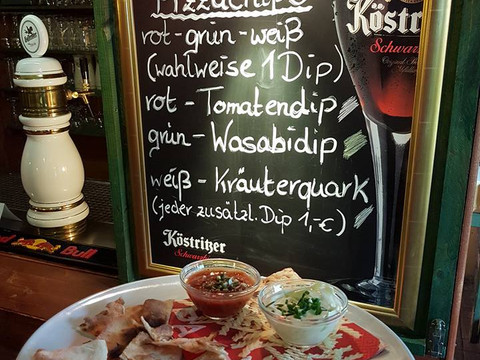 Pizzachips
rot-grün-weiß
(wahlweise 1 Dip)
rot - Tomatendip
grün - Wasabidip
weiß - Kräuterquark
(jeder zusätzl. Dip 1,-€)
Köstritzer
Schwarzbier
Köstritzer
Red Bull